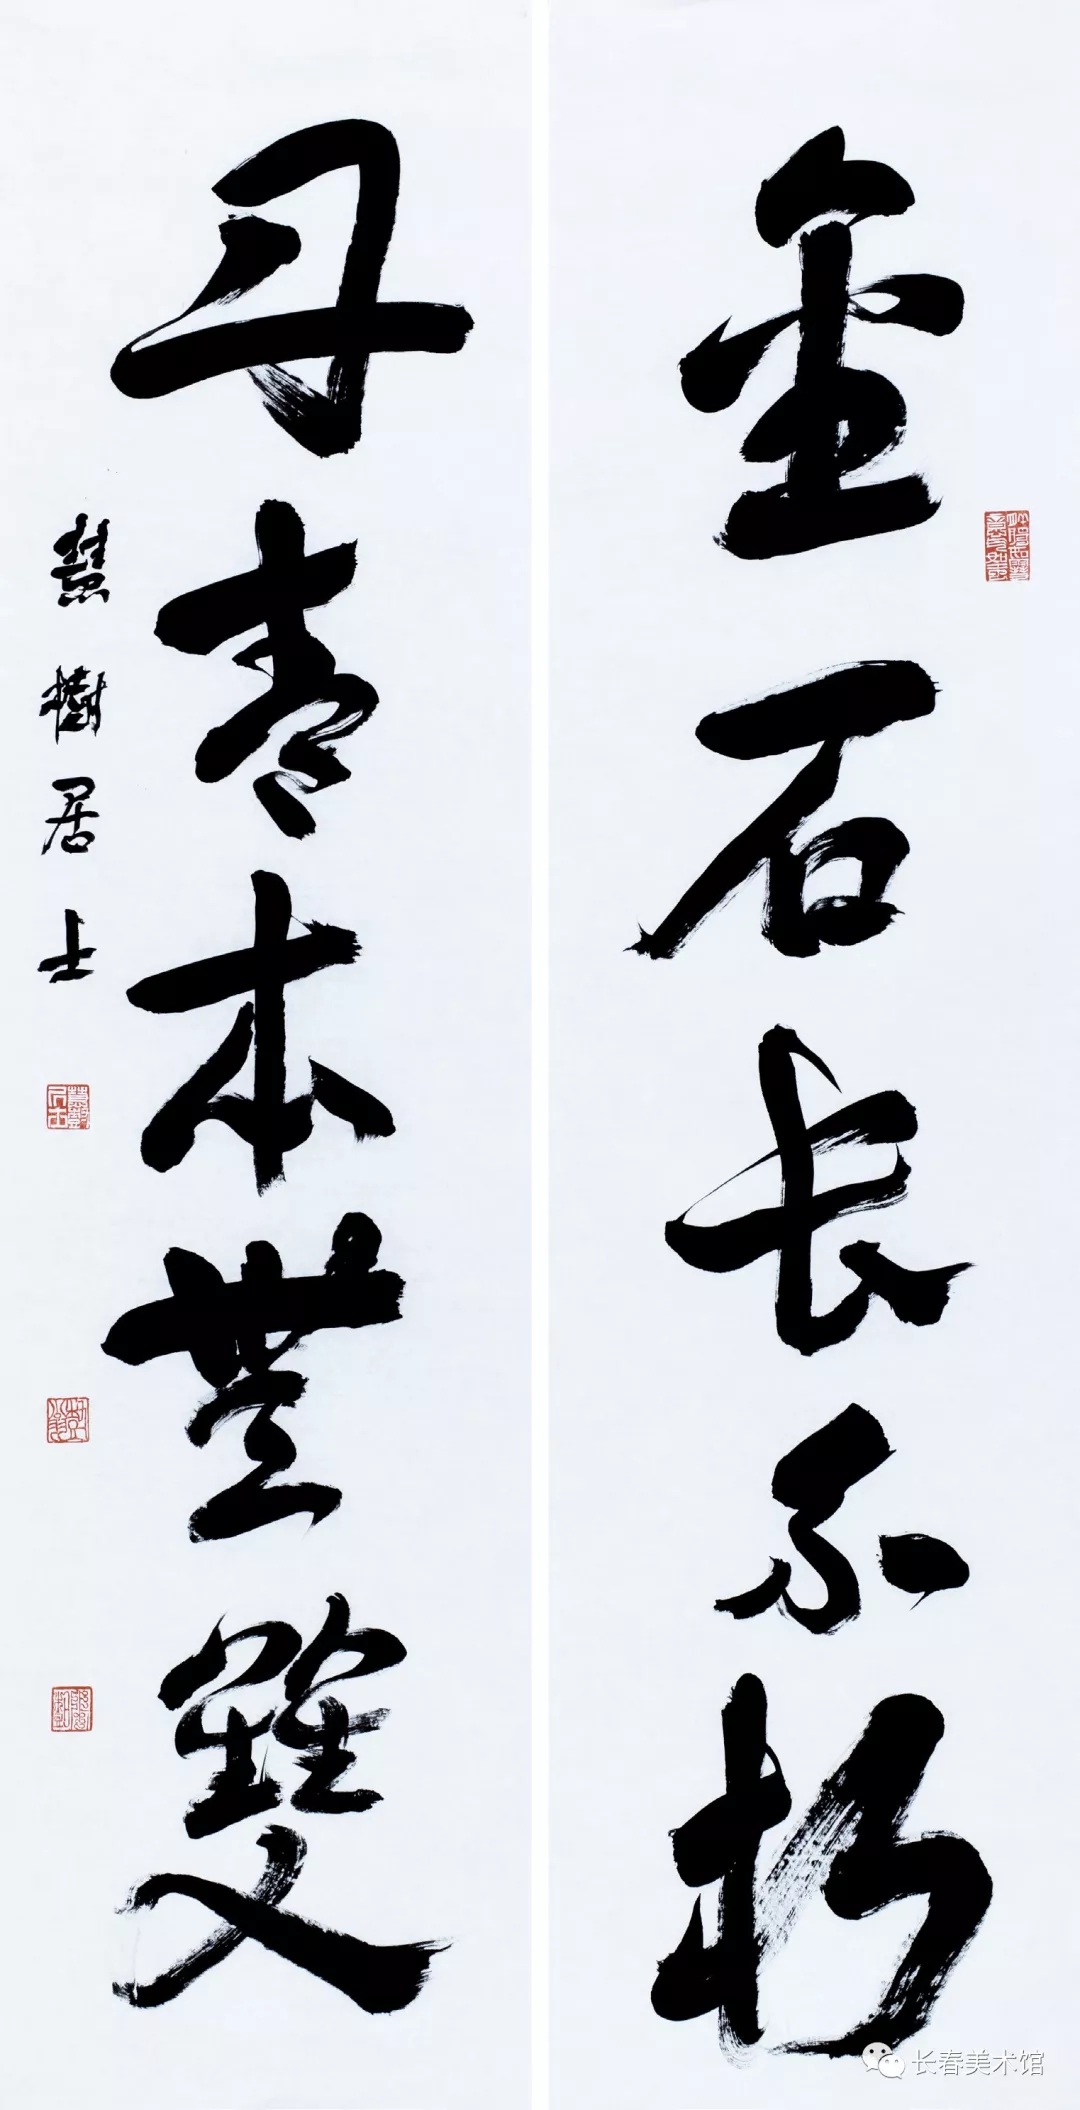 金石长不朽
丹青本無雙
慧樹居士
长春美术馆